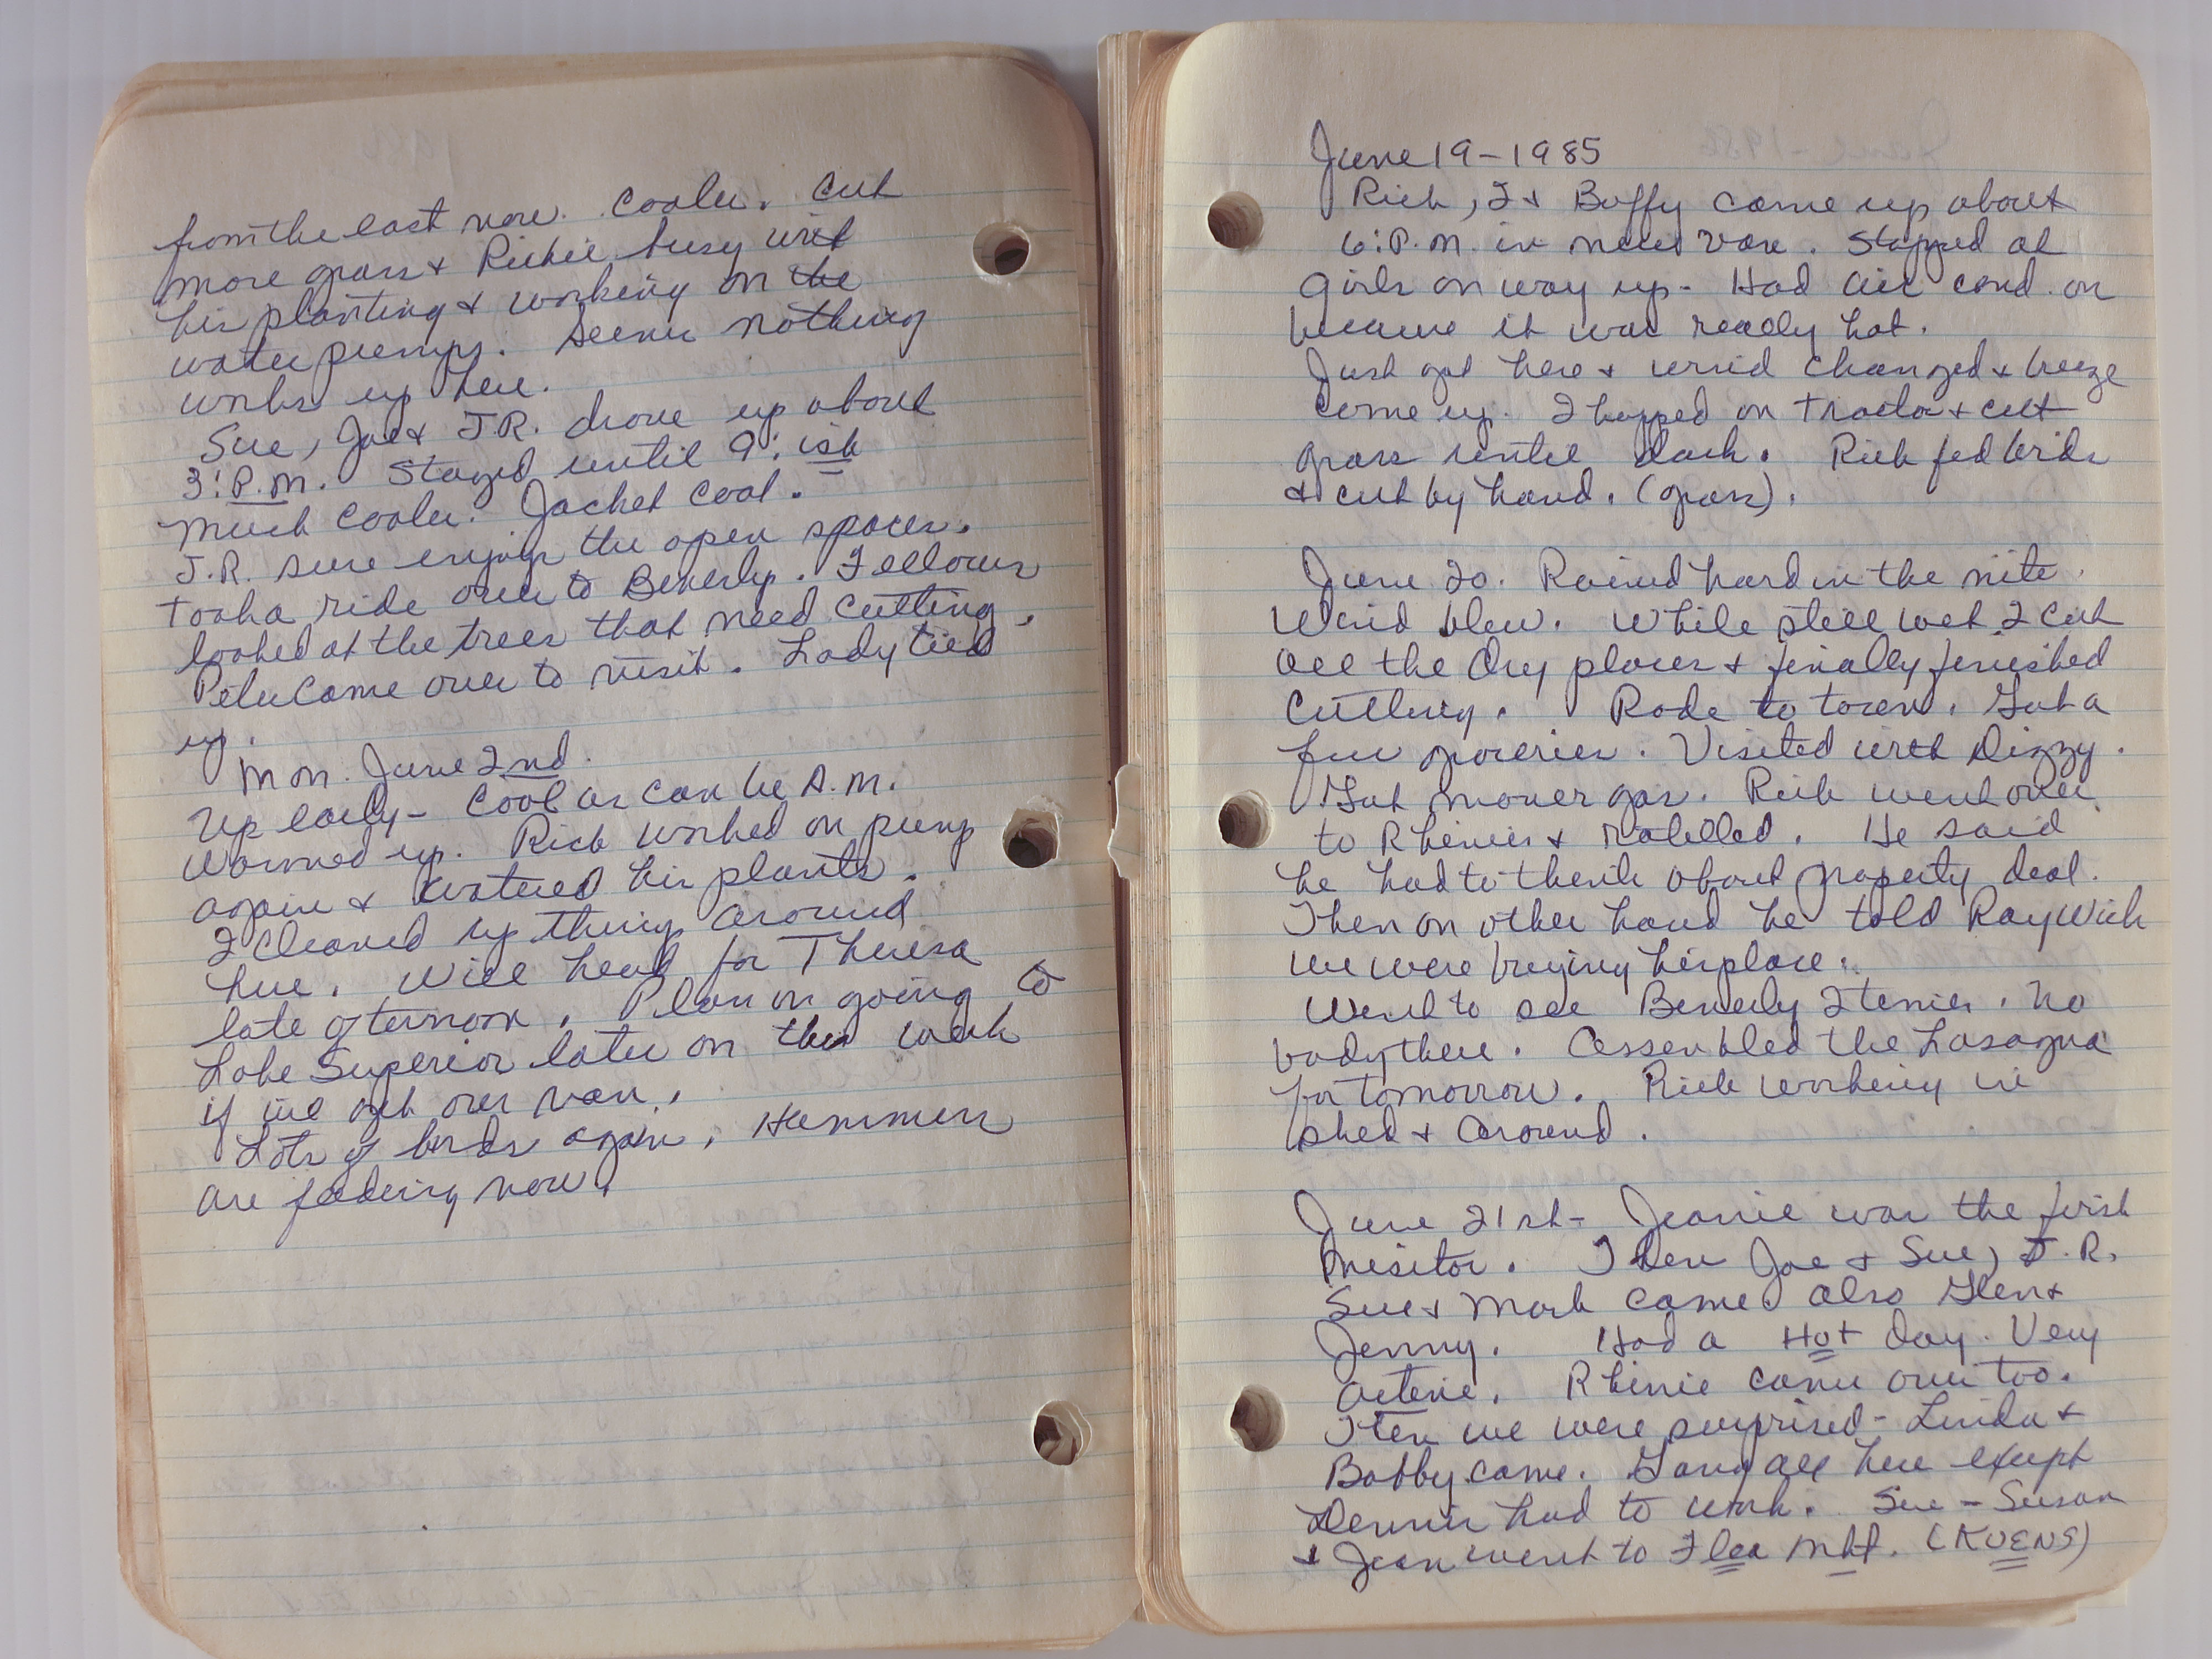 from the east now. Cooler. Cut
more grass & Richie busy with
his planting & working on the
water pumps. Seems nothing
works up here.
Sue, Joe & J.R. drove up about
3:P.M. Stayed until 9:ish
Much cooler. Jacket cool.
J.R. sure enjoys the open spaces.
Took a ride over to Beverly. Fellows
looked at the trees that need cutting.
Peter came over to visit. Lady tied
up.
Mon. June 2nd.
Up early - cool as can be A.M.
Warmed up. Rich worked on pump
again & watered his plants.
I cleaned up things around
here. Will head for Theresa
late afternoon. Plan on going to
Lake Superior later on this week
if we get our van.
Lots of birds again. Hummers
are fading now.
June 19-1985
Rich, I & Buffy came up about
6:P.M. in new van. Stopped at
girls on way up - Had air cond. on
because it was really hot.
Just got here & wind changed & breeze
come up. I hopped on tractor & cut
grass until dark. Rich fed birds
& cut by hand. (grass).
June 20. Rained hard in the nite.
Wind blew. While still wet I cut
all the dry places & finally finished
cutting. Rode to town. Got a
few groceries. Visited with Dizzy.
Got mower gas. Rich went over
to Rhinies & rototilled. He said
he had to think about property deal.
Then on other hand he told Ray Wick
we were buying his place.
Went to see Beverly Items. No
body there. Assembled the Lasagna
for tomorrow. Rich working in
shed & around.
June 21st - Jeanie was the first
visitor. Then Joe & Sue, J.R.
Sue & Mark came also Glen &
Jenny. Had a Hot day. Very
active. Rhinie came over too.
Then we were surprised - Linda &
Bobby came. Gang all here exept
Dennis had to work. Sue - Susan
& Jean went to Flea Mkt. (KUENS)